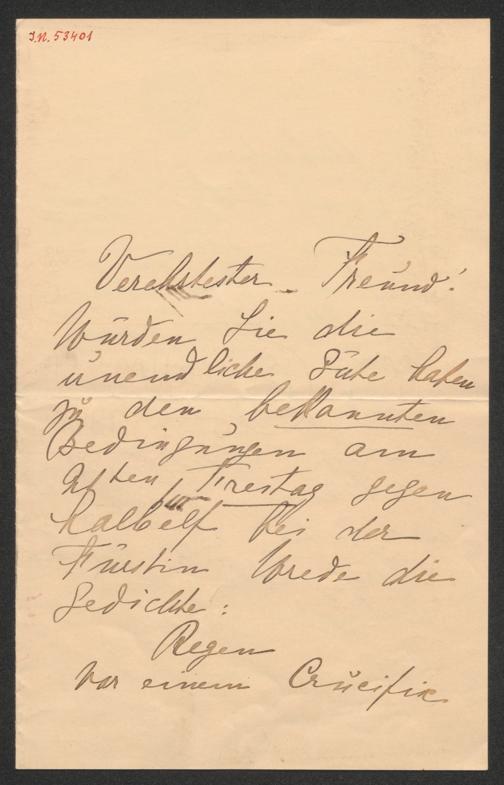 I.N. 53401
Verehrtester Freund!
Würden Sie die
unendliche Güte haben
zu den bekannten
Bedingungen am
ten Freitag gegen
halbelf bei der
Fürstin Wrede die
Gedichte:
Regen
vor einem Crucifix